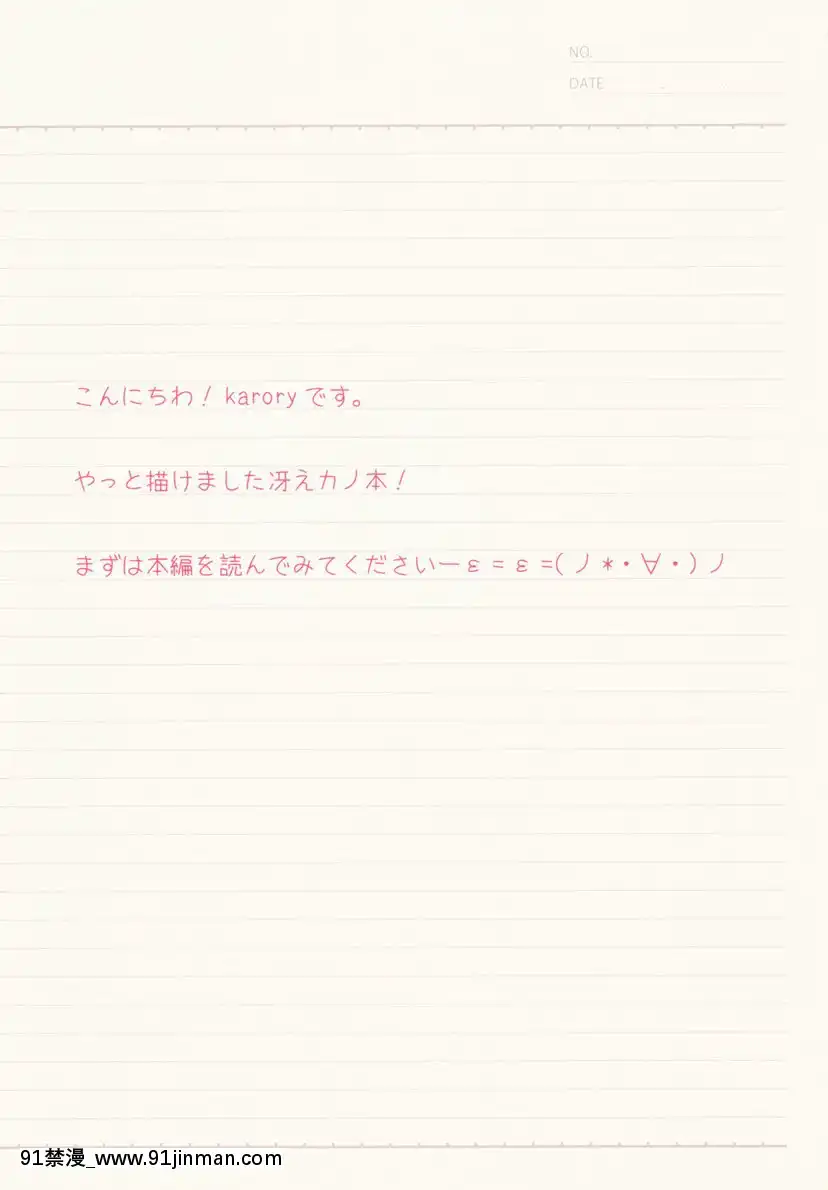 NO.
DATE
こんにちわ！karoryです。
やっと描けました冴えカノ本！
まずは本編を読んでみてくださいーε=ε=(ノ*・∀・)ノ
91禁漫_www.91jinman.com